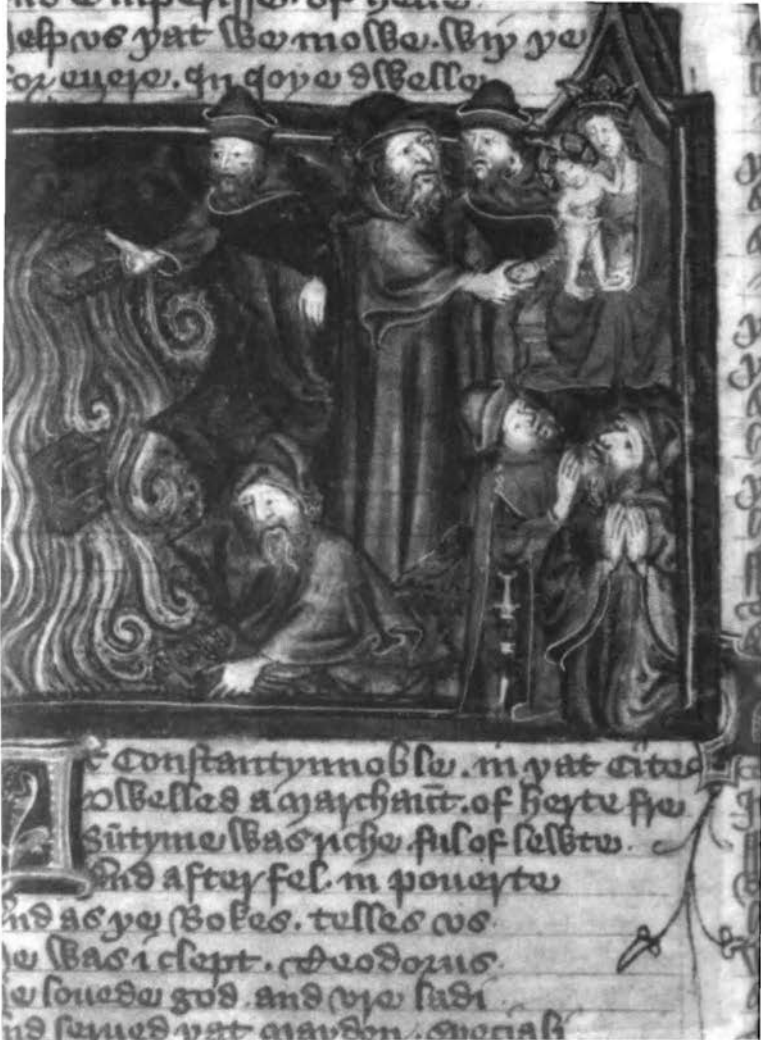 nd Emperisse. of helle
elp vs þat we mowe. wiþ þe
or euere. In Ioye dwelle
At Constantynnoble. in þat Citee
Dwelled a Marchaūt. of herte fre
Sūtyme was riche ful of lewte.
And after fel. in pouerte
nd as þe Bokes. telles vs
e was i clept. Teodorus.
e louede god. and vre ladi
nd serued þat Mayden. speciali